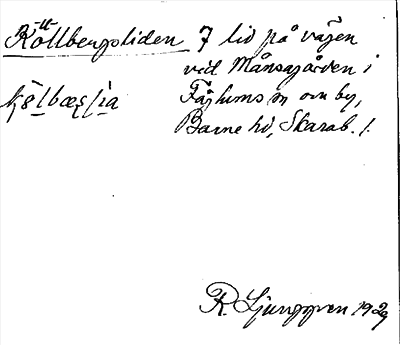 Köttbengsliden 7 lid på vägen
vid Månsagården i
Fåglums sn o. by,
Barne hd, Skarab. l.
R. Ljunggren 1929